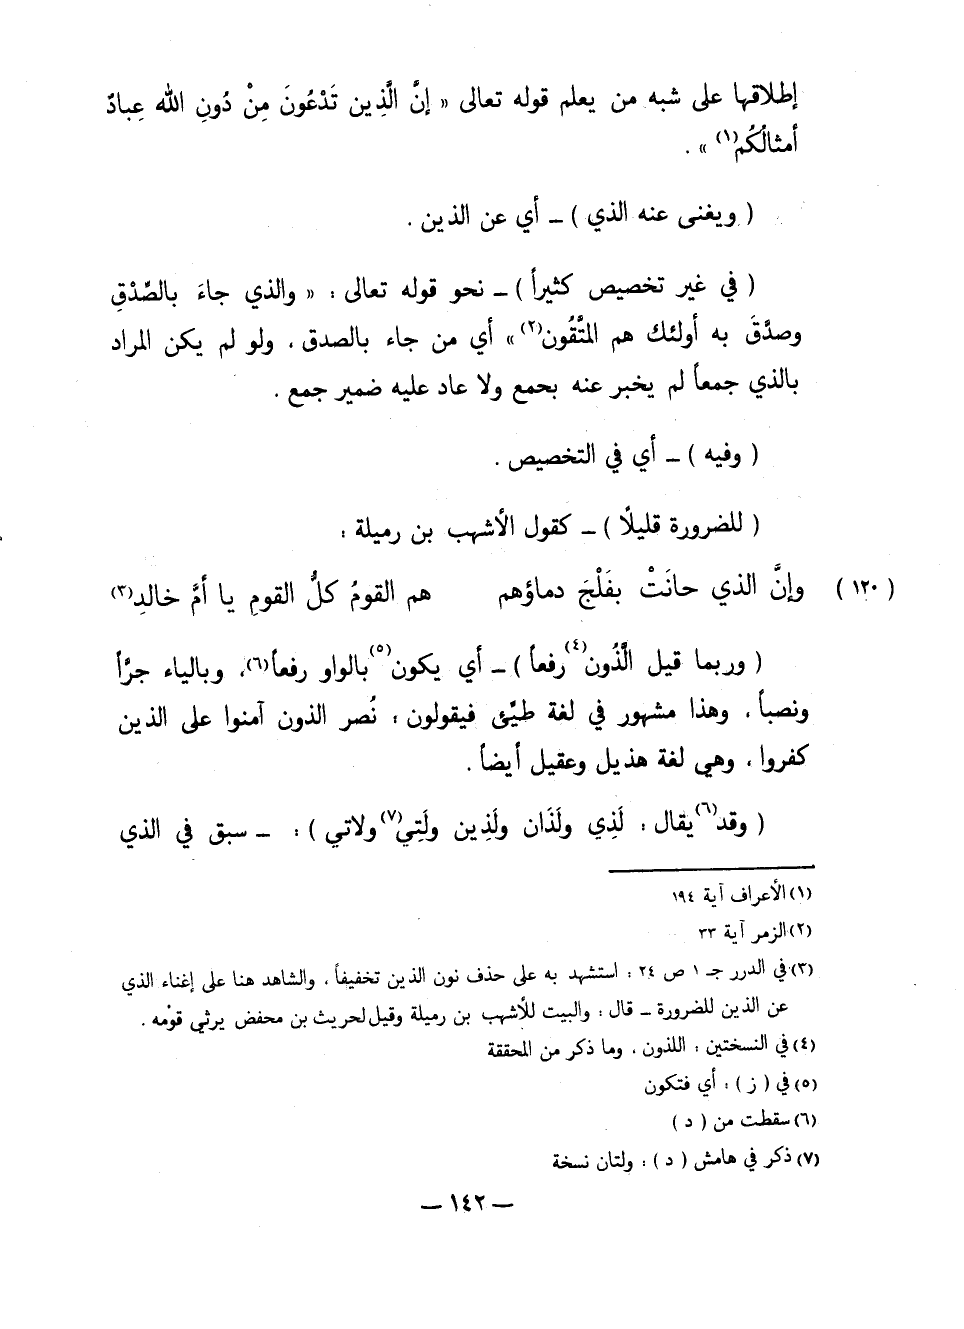 إطلاقها على شبه من يعلم قوله تعالى « إنَّ الَّذِين تَدْعُونَ مِنْ دُونِ الله عِبادٌ
أمثالُكُم(١) » .
( ويغنى عنه الذي ) ـ أي عن الذين .
( في غير تخصيص كثيراً ) ـ نحو قوله تعالى : « والذي جاءَ بالصِّدْقِ
وصدَّقَ به أولئك هم المتَّقُون(٢) » أي من جاء بالصدق . ولو لم يكن المراد
بالذي جمعاً لم يخبر عنه بجمع ولا عاد عليه ضمير جمع .
( وفيه ) ـ أي في التخصيص .
( للضرورة قليلًا ) ـ كقول الأشهب بن رميلة :
( ١٢٠ ) وإنَّ الذي حانَتْ بفَلْجَ دماؤهم هم القومُ كلُّ القومِ يا أمَّ خالدِ(٣)
( وربما قيل الَّذُون(٤) رفعاً ) ـ أي يكون(٥) بالواو رفعاً(٦) . وبالياء جرَّاً
ونصباً . وهذا مشهور في لغة طيِّئ فيقولون : نُصر الذون آمنوا على الذين
كفروا . وهي لغة هذيل وعقيل أيضاً .
( وقد(٦) يقال : لَذِي ولَذَان ولَذِين ولَتِي(٧) ولاتي ) : ـ سبق في الذي
(١) الأعراف آية ١٩٤
(٢) الزمر آية ٣٣
(٣) في الدرر جـ ١ ص ٢٤ : استشهد به على حذف نون الذين تخفيفاً . والشاهد هنا على إغناء الذي
عن الذين للضرورة ـ قال : والبيت للأشهب بن رميلة وقيل لحريث بن محفض يرثي قوْمه .
(٤) في النسختين : اللذون . وما ذكر من المحققة
(٥) في ( ز ) : أي فتكون
(٦) سقطت من ( د )
(٧) ذكر في هامش ( د ) : ولتان نسخة
ـ ١٤٢ ـ